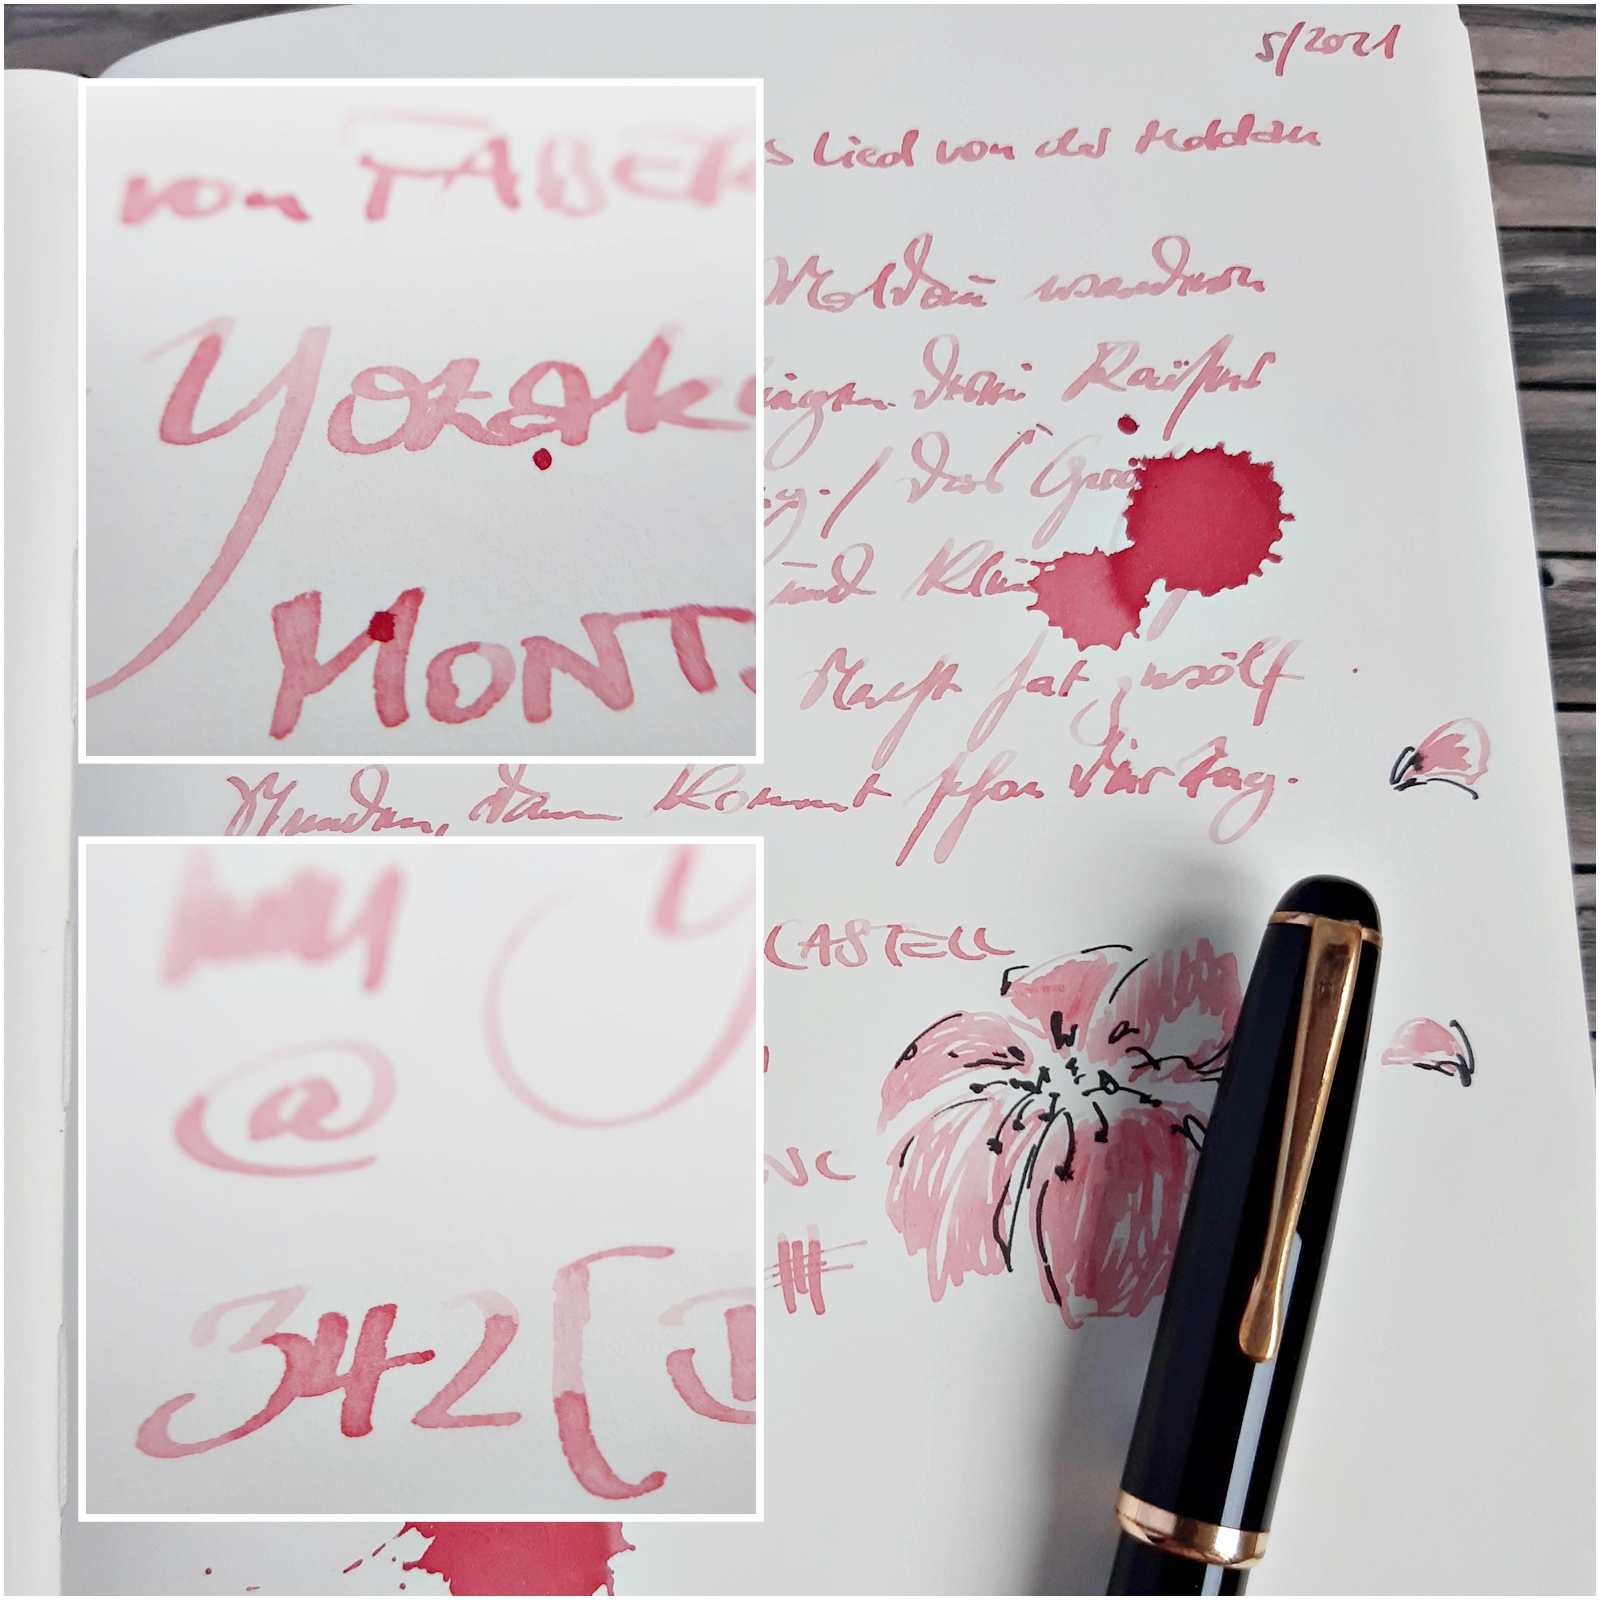 5/2021
s Lied von der Moldau
Moldau wandern
ingen drei Kaiser
g. / Das Gro
und Klein
Nacht hat zwölf
Stunden, dann kommt schon der Tag.
CASTELL
NC
von FABER
Yozak
MONT
@
342 [